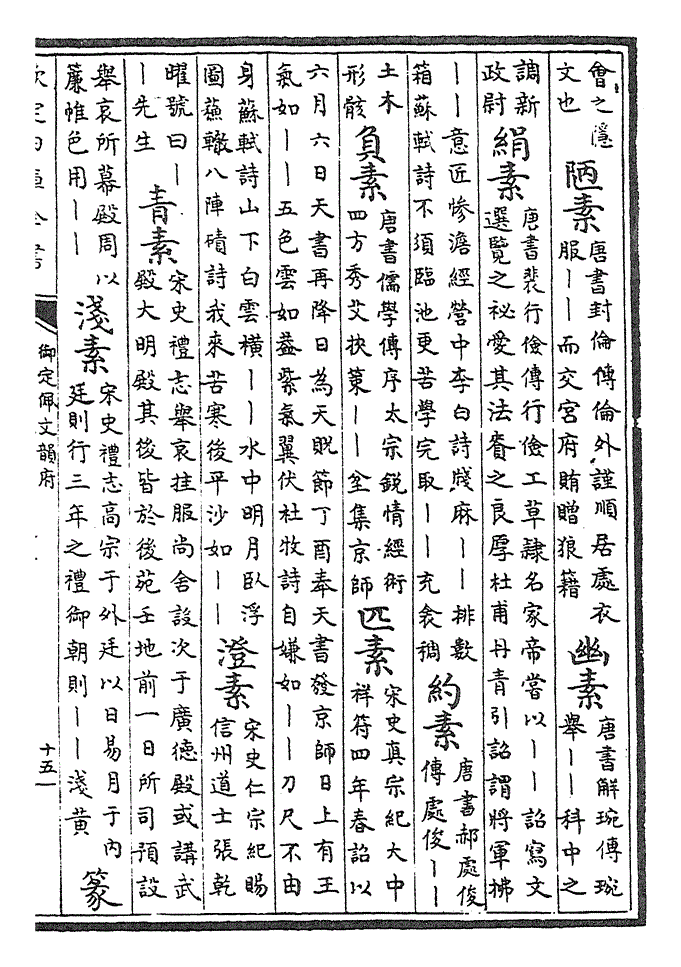 會之隱
文也
陋素
唐書封倫傳倫外謹順居處衣
服||而交宮府賄贈狼籍
幽素
唐書解琬傳琬
舉||科中之
調新
政尉
絹素
唐書裴行儉傳行儉工草隸名家帝嘗以||詔寫文
選覽之祕愛其法賚之良厚杜甫丹青引詔謂將軍拂
||意匠慘澹經營中李白詩牋麻||排數
箱蘇軾詩不須臨池更苦學完取||充衾裯
約素
唐書郝處俊
傳處俊||
土木
形骸
負素
唐書儒學傳序太宗銳情經術
四方秀艾挾策||坌集京師
匹素
宋史真宗紀大中
祥符四年春詔以
六月六日天書再降日為天貺節丁酉奉天書發京師日上有王
氣如||五色雲如葢紫氣翼伏杜牧詩自嫌如||刀尺不由
身蘇軾詩山下白雲橫||水中明月臥浮
圖蘇轍八陣磧詩我來苦寒後平沙如||
澄素
宋史仁宗紀賜
信州道士張乾
曜號曰|
|先生
青素
宋史禮志舉哀挂服尚舍設次于廣德殿或講武
殿大明殿其後皆於後苑壬地前一日所司預設
舉哀所幕殿周以
簾帷色用||
淺素
宋史禮志高宗于外廷以日易月于內
廷則行三年之禮御朝則||淺黃
篆
欽定四庫全書
御定佩文韻府
十五